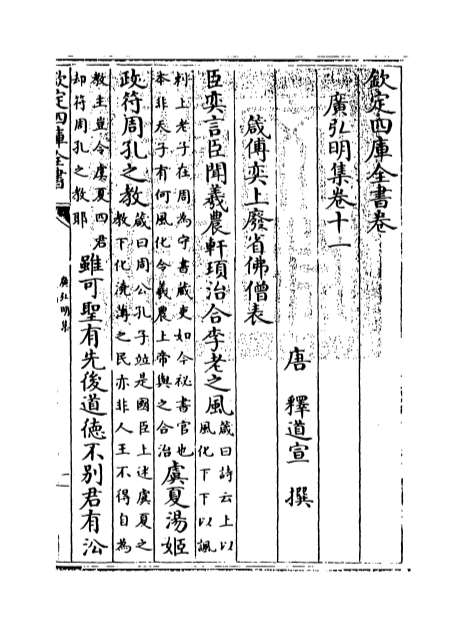 欽定四庫全書卷
廣弘明集卷十一
唐 釋道宣 撰
箴傅奕上廢省佛僧表
臣奕言臣聞羲農軒頊治合李老之風
箴曰詩云上以
風化下下以諷
刺上老子在周為守書藏吏如今祕書官也
本非天子有何風化令羲農上帝與之合治
虞夏湯姬
政符周孔之教
箴曰周公孔子竝是國臣上述虞夏之
教下化澆薄之民亦非人王不得自為
教主豈令虞夏四君
却符周孔之教耶
雖可聖有先後道徳不别君有沿
欽定四庫全書
廣弘明集
一